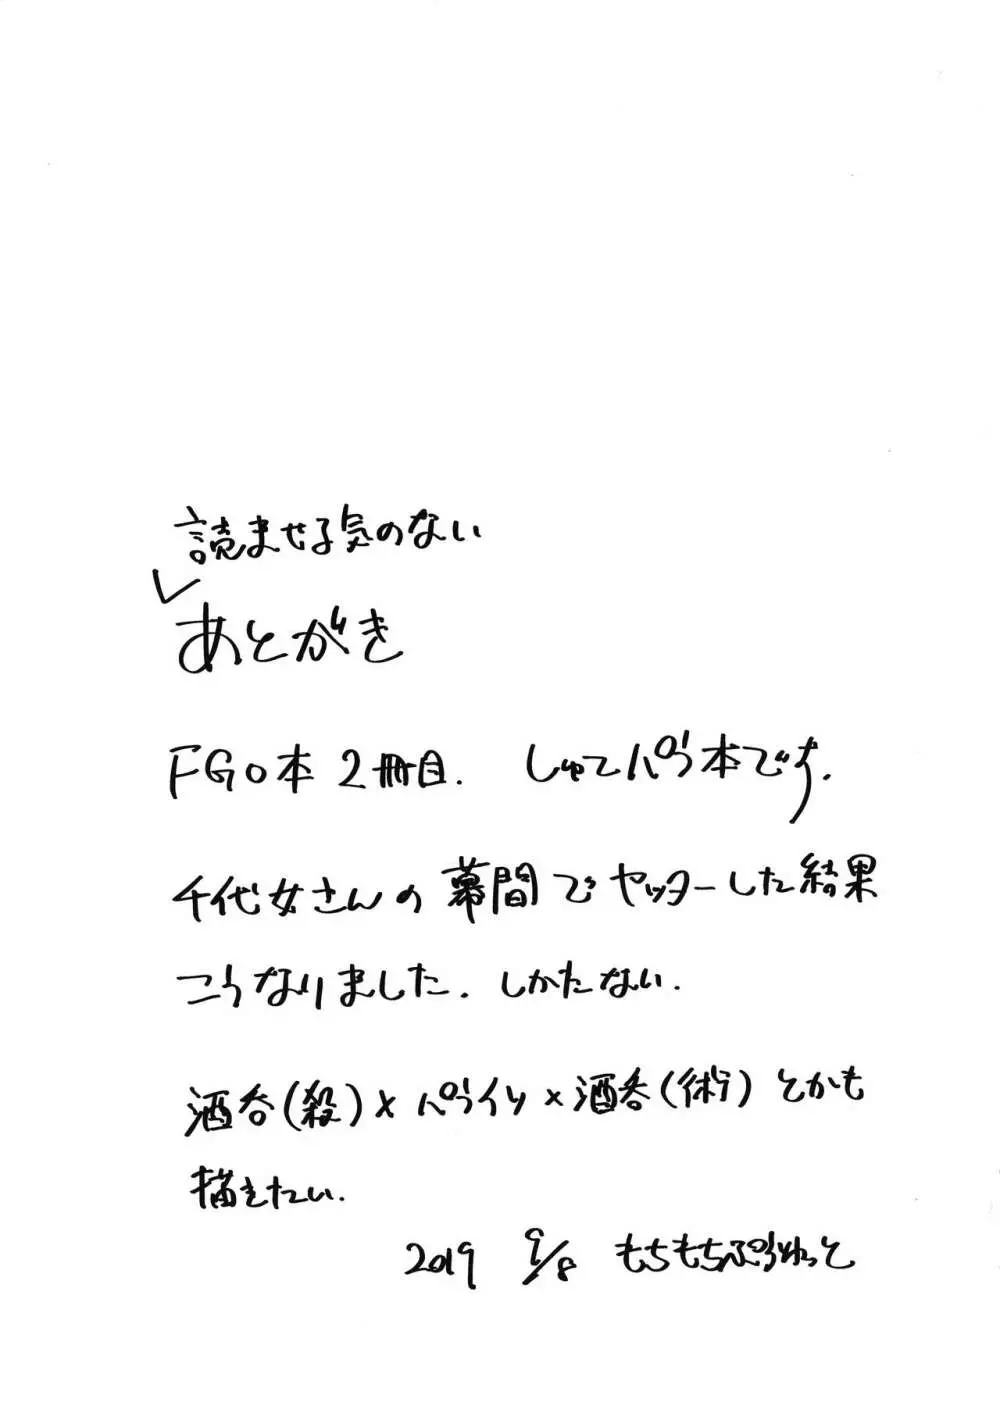 読ませる気のない
あとがき
FGO本2冊目. しゅてパラ本です.
千代女さんの幕間でヤッターした結果
こうなりました. しかたない.
酒呑(殺)×パライソ×酒呑(術)とかも
描きたい.
2019 9/8 もちもちぷられっと